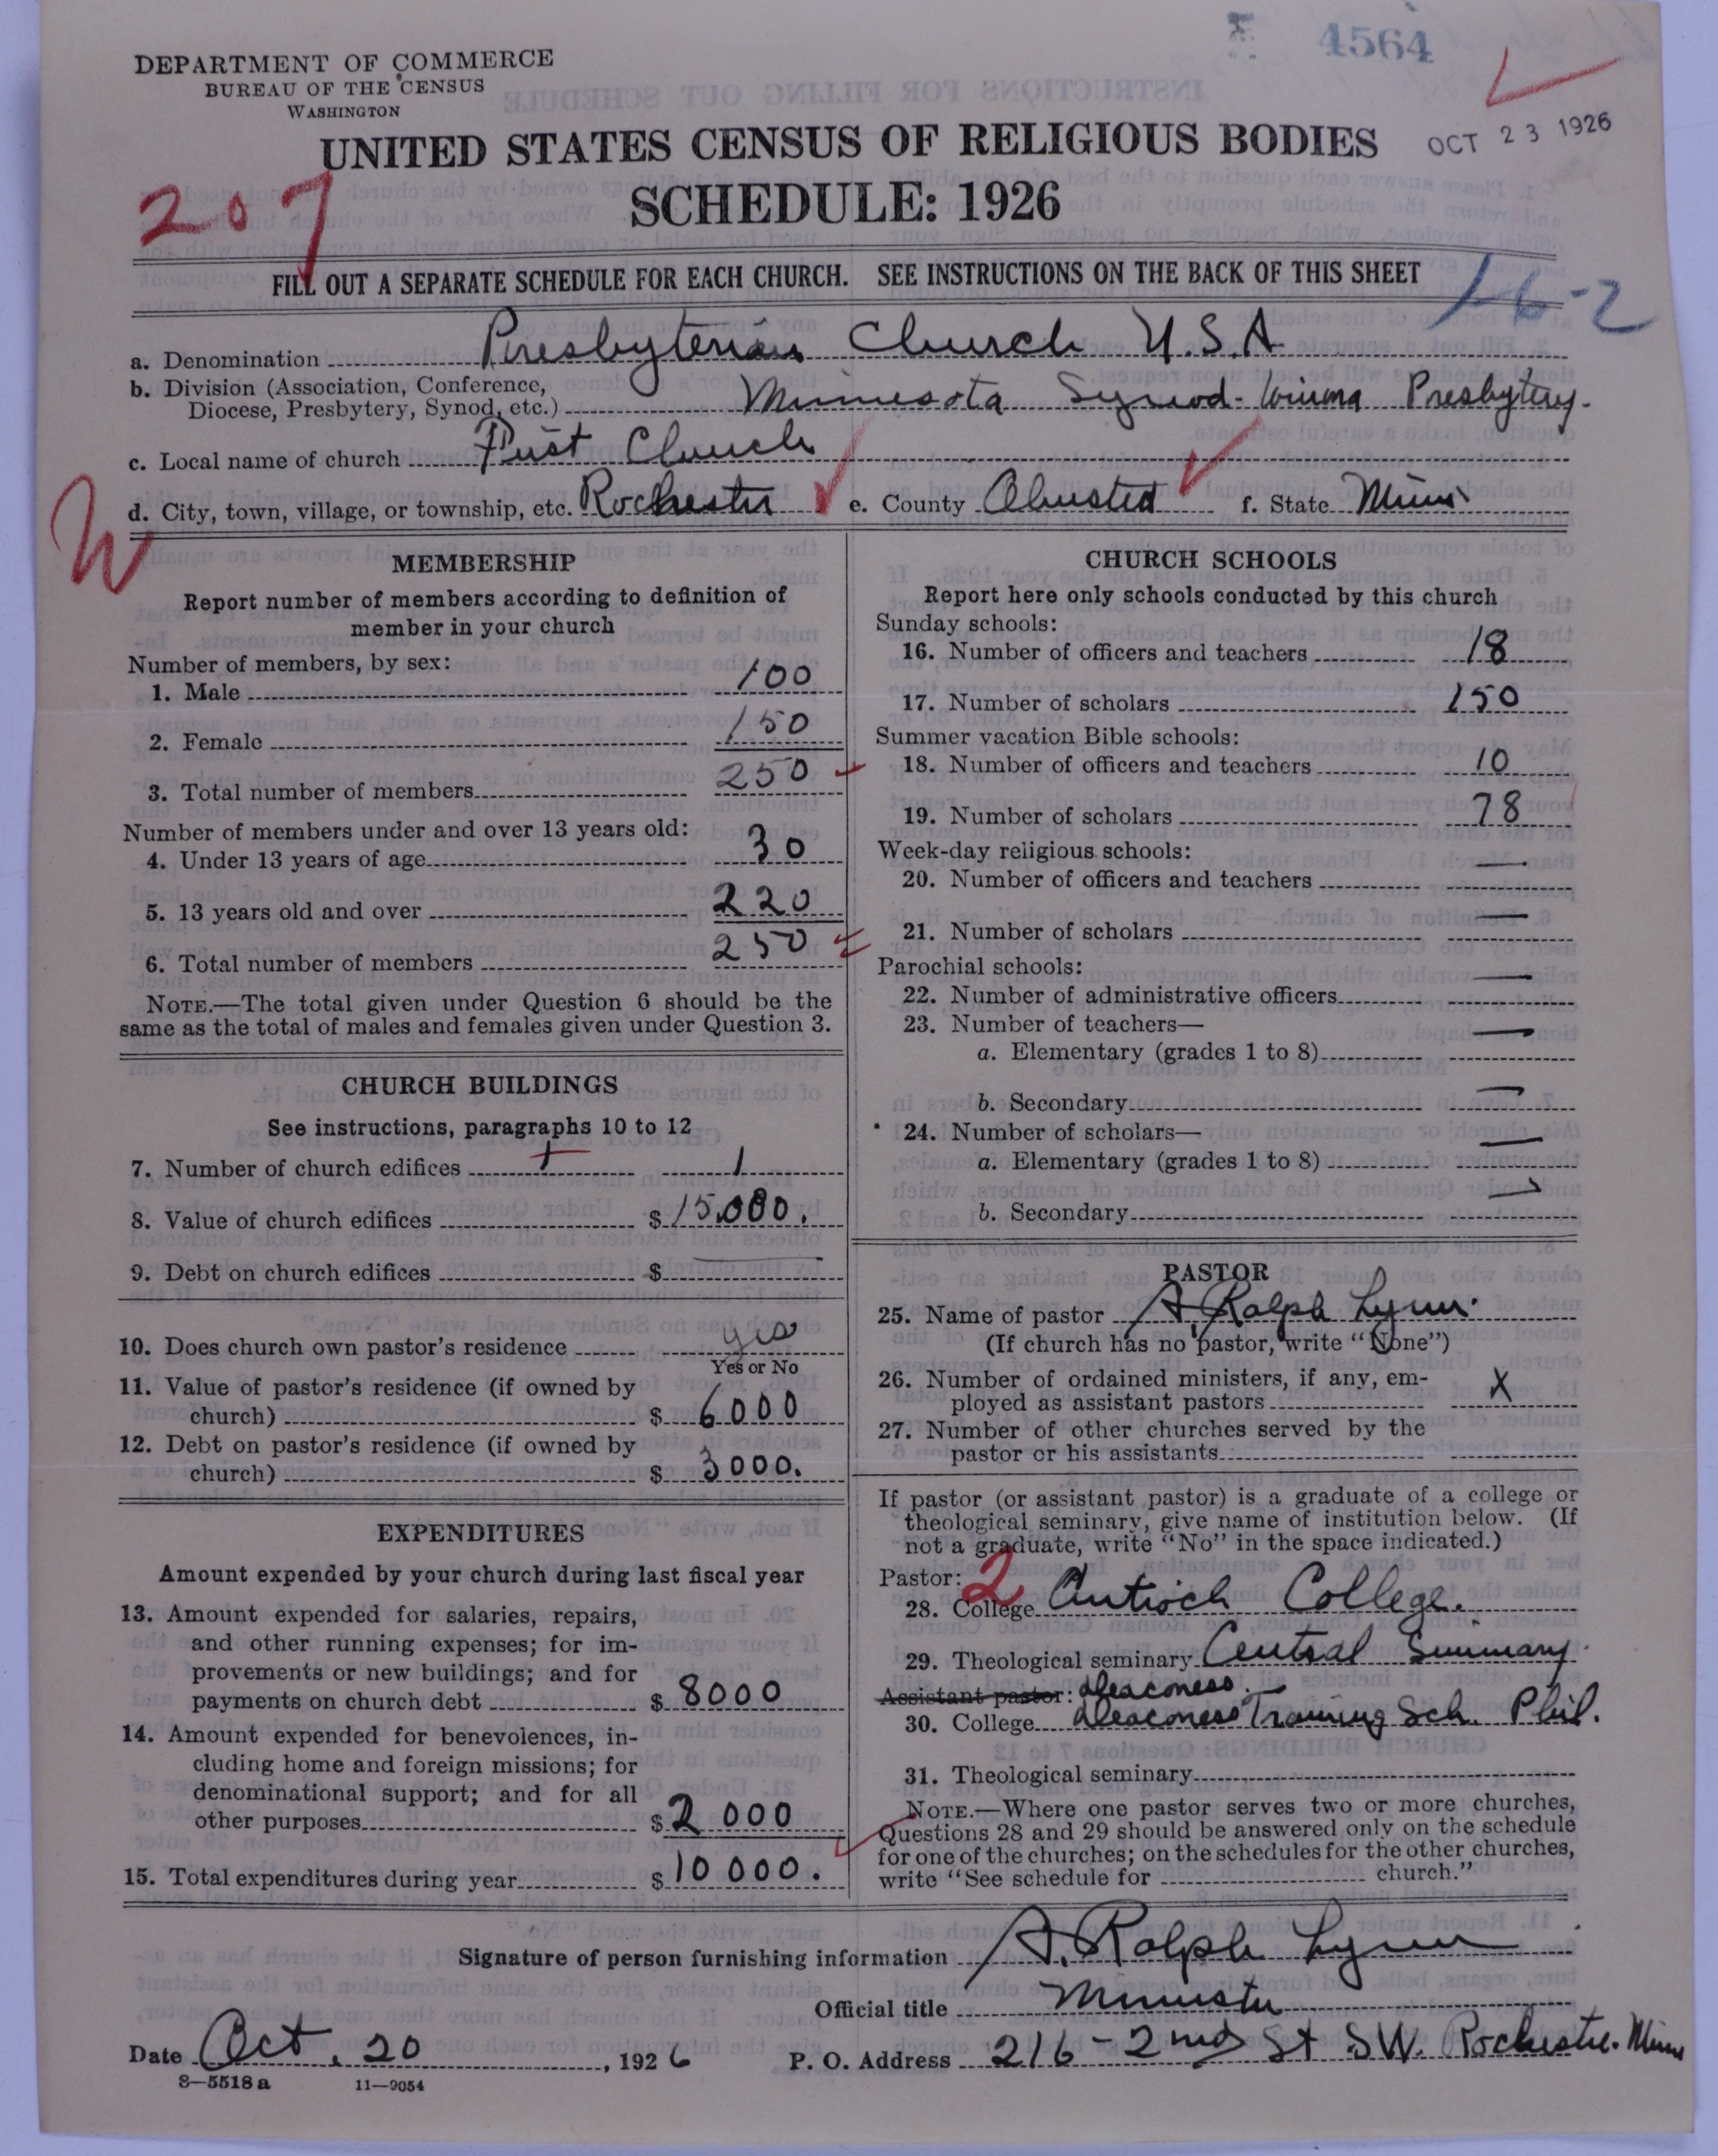 4564
DEPARTMENT OF COMMERCE
BUREAU OF THE CENSUS
WASHINGTON
UNITED STATES CENSUS OF RELIGIOUS BODIES
OCT 23 1926
SCHEDULE: 1926
207
FILL OUT A SEPARATE SCHEDULE FOR EACH CHURCH. SEE INSTRUCTIONS ON THE BACK OF THIS SHEET
16-2
a. Denomination Presbyterian Church U.S.A
b. Division (Association, Conference,
Diocese, Presbytery, Synod, etc.) Minnesota Synod - Winona Presbytery.
c. Local name of church First Church
d. City, town, village, or township, etc. Rochester e. County Olmsted f. State Minn
W
MEMBERSHIP
Report number of members according to definition of
member in your church
Number of members, by sex:
1. Male 100
2. Female 150
3. Total number of members 250
Number of members under and over 13 years old:
4. Under 13 years of age 30
5. 13 years old and over 220
6. Total number of members 250
NOTE.—The total given under Question 6 should be the
same as the total of males and females given under Question 3.
CHURCH BUILDINGS
See instructions, paragraphs 10 to 12
7. Number of church edifices 1 1
8. Value of church edifices $ 15.000.
9. Debt on church edifices $
10. Does church own pastor's residence yes
Yes or No
11. Value of pastor's residence (if owned by
church) $ 6000
12. Debt on pastor's residence (if owned by
church) $ 3000.
EXPENDITURES
Amount expended by your church during last fiscal year
13. Amount expended for salaries, repairs,
and other running expenses; for im-
provements or new buildings; and for
payments on church debt $ 8000
14. Amount expended for benevolences, in-
cluding home and foreign missions; for
denominational support; and for all
other purposes $ 2000
15. Total expenditures during year $ 10000.
CHURCH SCHOOLS
Report here only schools conducted by this church
Sunday schools:
16. Number of officers and teachers 18
17. Number of scholars 150
Summer vacation Bible schools:
18. Number of officers and teachers 10
19. Number of scholars 78
Week-day religious schools:
20. Number of officers and teachers —
21. Number of scholars —
Parochial schools:
22. Number of administrative officers —
23. Number of teachers—
a. Elementary (grades 1 to 8) —
b. Secondary —
24. Number of scholars—
a. Elementary (grades 1 to 8) —
b. Secondary —
PASTOR
25. Name of pastor A. Ralph Lynn.
(If church has no pastor, write "None")
26. Number of ordained ministers, if any, em-
ployed as assistant pastors X
27. Number of other churches served by the
pastor or his assistants
If pastor (or assistant pastor) is a graduate of a college or
theological seminary, give name of institution below. (If
not a graduate, write "No" in the space indicated.)
Pastor: 2
28. College Antioch College.
29. Theological seminary Central Seminary.
Assistant pastor: Deaconess.
30. College Deaconess Training Sch. Phil.
31. Theological seminary
NOTE.—Where one pastor serves two or more churches,
Questions 28 and 29 should be answered only on the schedule
for one of the churches; on the schedules for the other churches,
write "See schedule for church."
Signature of person furnishing information A. Ralph Lynn
Official title Minister
Date Oct. 20, 1926 P. O. Address 216 - 2nd St SW. Rochester. Minn
8—5518 a 11—9054